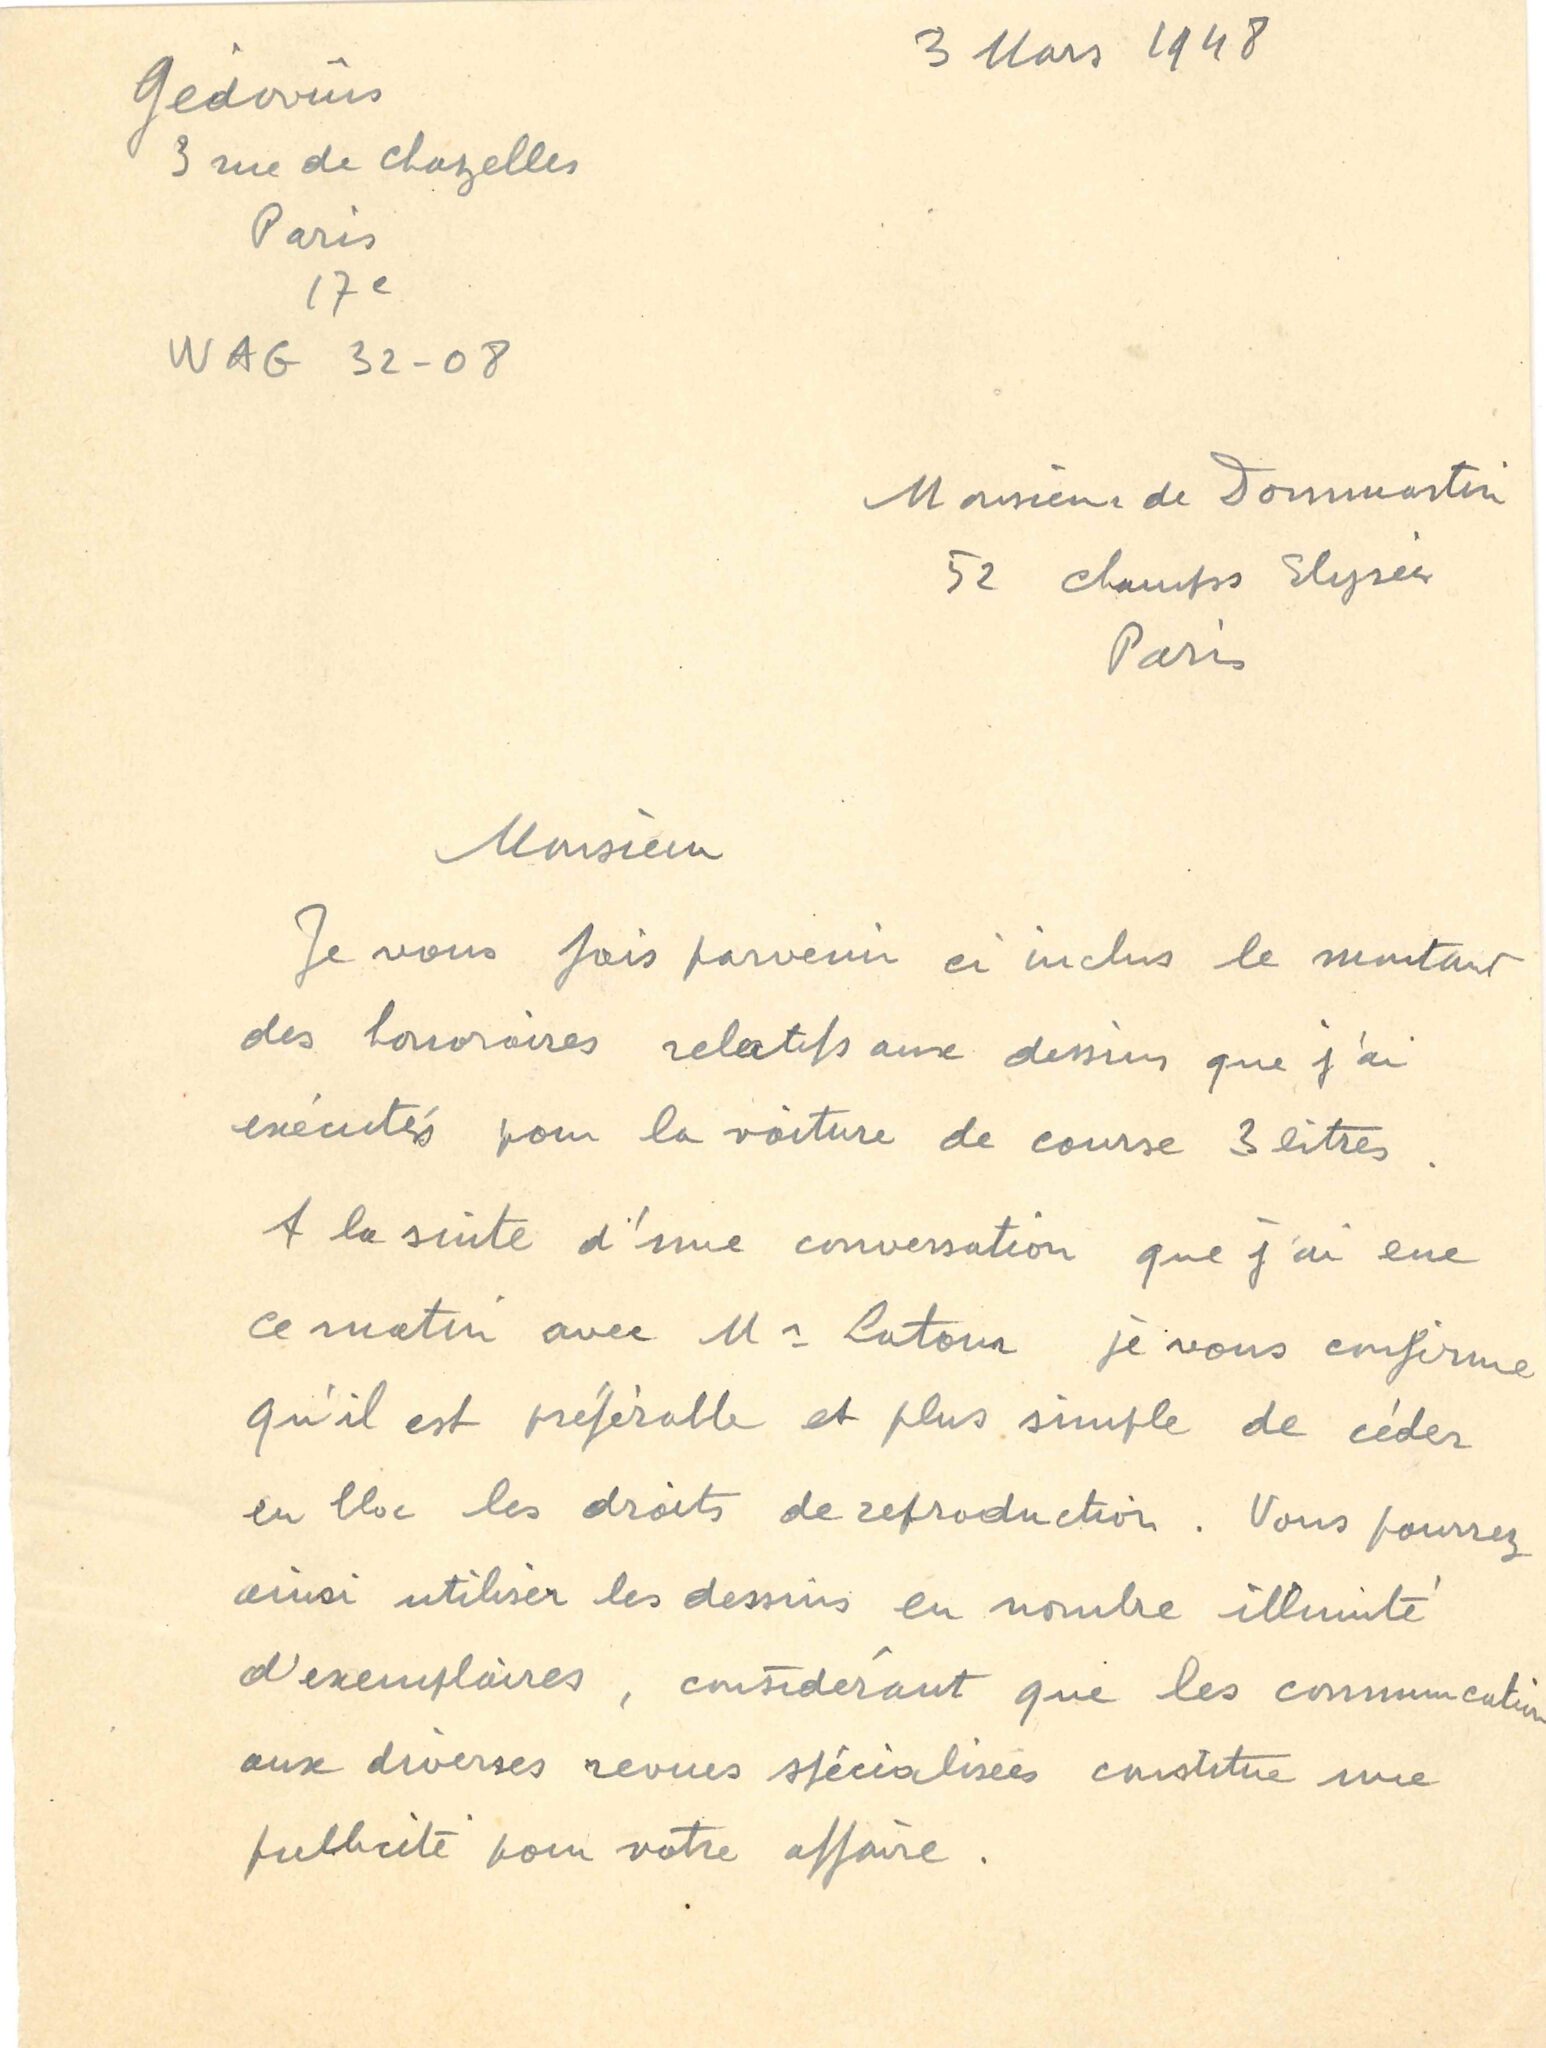 3 Mars 1948
Gédovius
3 rue de Chazelles
Paris
17e
WAG 32-08
Monsieur de Dommartin
52 champs Elysées
Paris
Monsieur
Je vous fais parvenir ci inclus le montant
des honoraires relatifs aux dessins que j'ai
exécutés pour la voiture de course 3 litres.
A la suite d'une conversation que j'ai eue
ce matin avec Mr Latour je vous confirme
qu'il est préférable et plus simple de céder
en bloc les droits de reproduction. Vous pourrez
ainsi utiliser les dessins en nombre illimité
d'exemplaires, considérant que les communication
aux diverses revues spécialisées constitue une
publicité pour votre affaire.